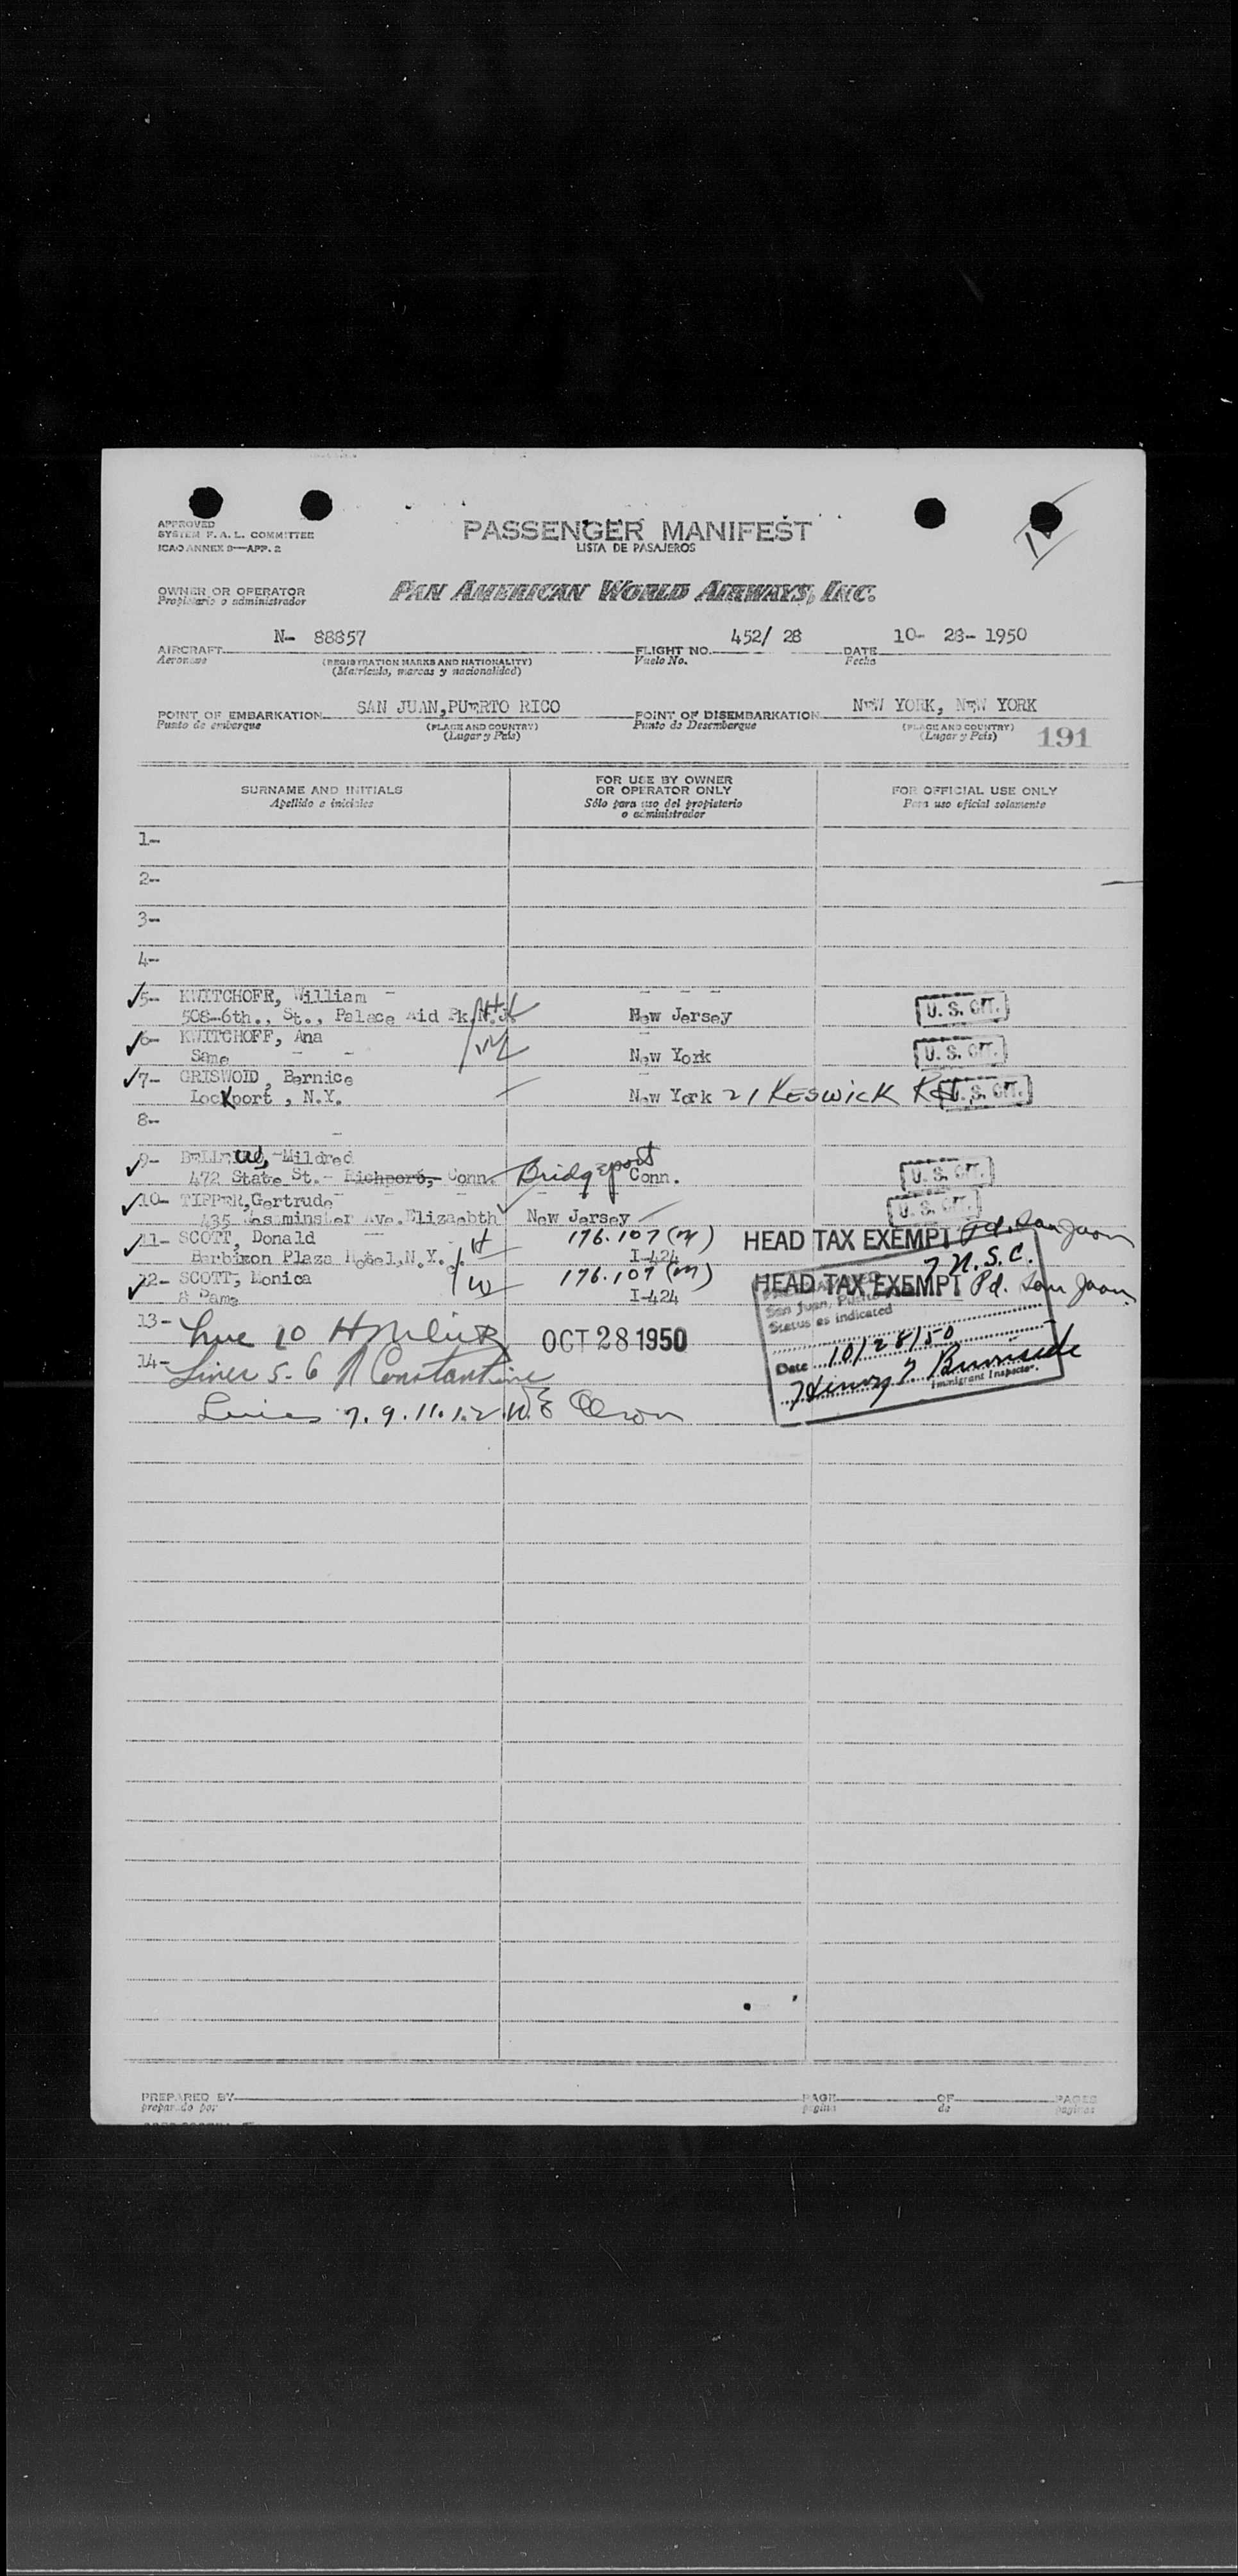 APPROVED
SYSTEM F. A. L. COMMITTEE
ICAO ANNEX 9—APP. 2
PASSENGER MANIFEST
LISTA DE PASAJEROS
OWNER OR OPERATOR
Propietario o administrador
PAN AMERICAN WORLD AIRWAYS, INC.
N- 88857 452/ 28 10- 28- 1950
AIRCRAFT FLIGHT NO. DATE
Aeronave (REGISTRATION MARKS AND NATIONALITY) Vuelo No. Fecha
(Matrícula, marcas y nacionalidad)
SAN JUAN, PUERTO RICO NEW YORK, NEW YORK
POINT OF EMBARKATION POINT OF DISEMBARKATION
Punto de embarque (PLACE AND COUNTRY) Punto de Desembarque (PLACE AND COUNTRY)
(Lugar y País) (Lugar y País) 191
SURNAME AND INITIALS
Apellido e iniciales
FOR USE BY OWNER
OR OPERATOR ONLY
Sólo para uso del propietario
o administrador
FOR OFFICIAL USE ONLY
Para uso oficial solamente
1-
2-
3-
4-
5- KWITCHOFF, William
508-6th., St., Palace Aid Pk. N.J. New Jersey U. S. CIT.
6- KWITCHOFF, Ana
Same New York U. S. CIT.
7- GRISWOID, Bernice
Lockport, N.Y. New York 21 KESWICK Rd. U. S. CIT.
8-
9- Mildred
472 State St.- Richport, Conn. Bridgeport Conn. U. S. CIT.
10- TIPPER, Gertrude U. S. CIT.
435 Westminster Ave. Elizaebth New Jersey
11- SCOTT, Donald H 176.107 (m) HEAD TAX EXEMPT Pd. San Juan
Barbizon Plaza Hotel, N.Y. I-424 N.S.C.
12- SCOTT, Monica W 176.107 (m) HEAD TAX EXEMPT Pd. San Juan
Same I-424
San Juan,
Status as indicated
13- Line 10 OCT 28 1950
Date 10/28/50
14- Lines 5-6 Constantine
Henry
Immigrant Inspector.
Lines 7. 9. 11. 12 Olson
PREPARED BY PAGE OF PAGES
preparado por página de páginas